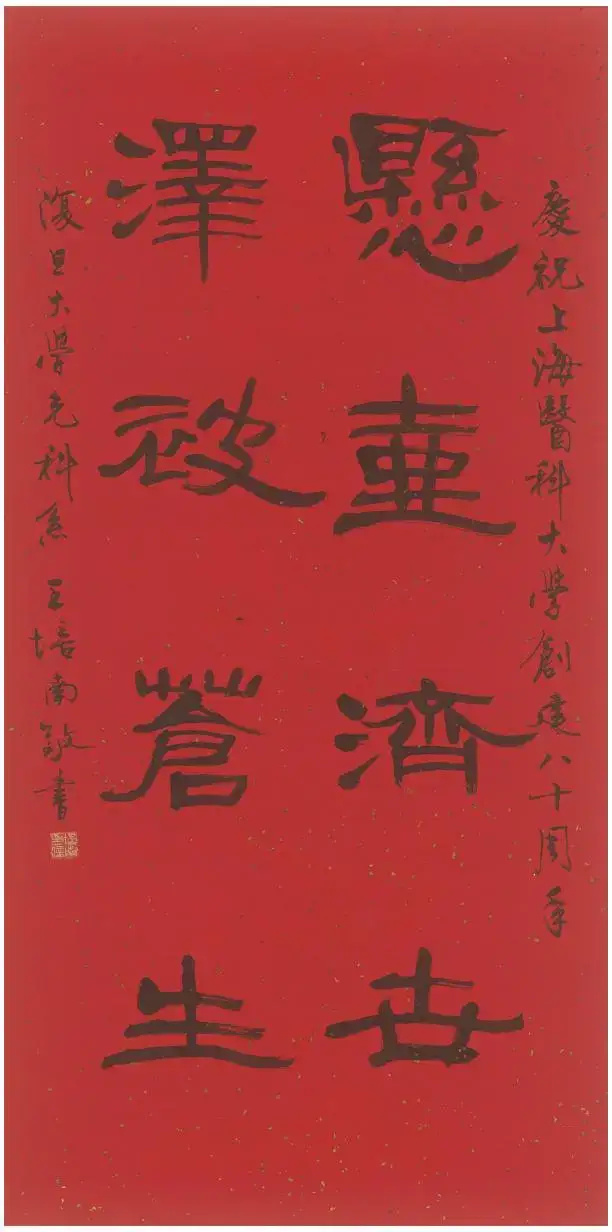 慶祝上海醫科大學創建八十周年
懸壺濟世
澤被蒼生
復旦大學光科系 王培南敬書